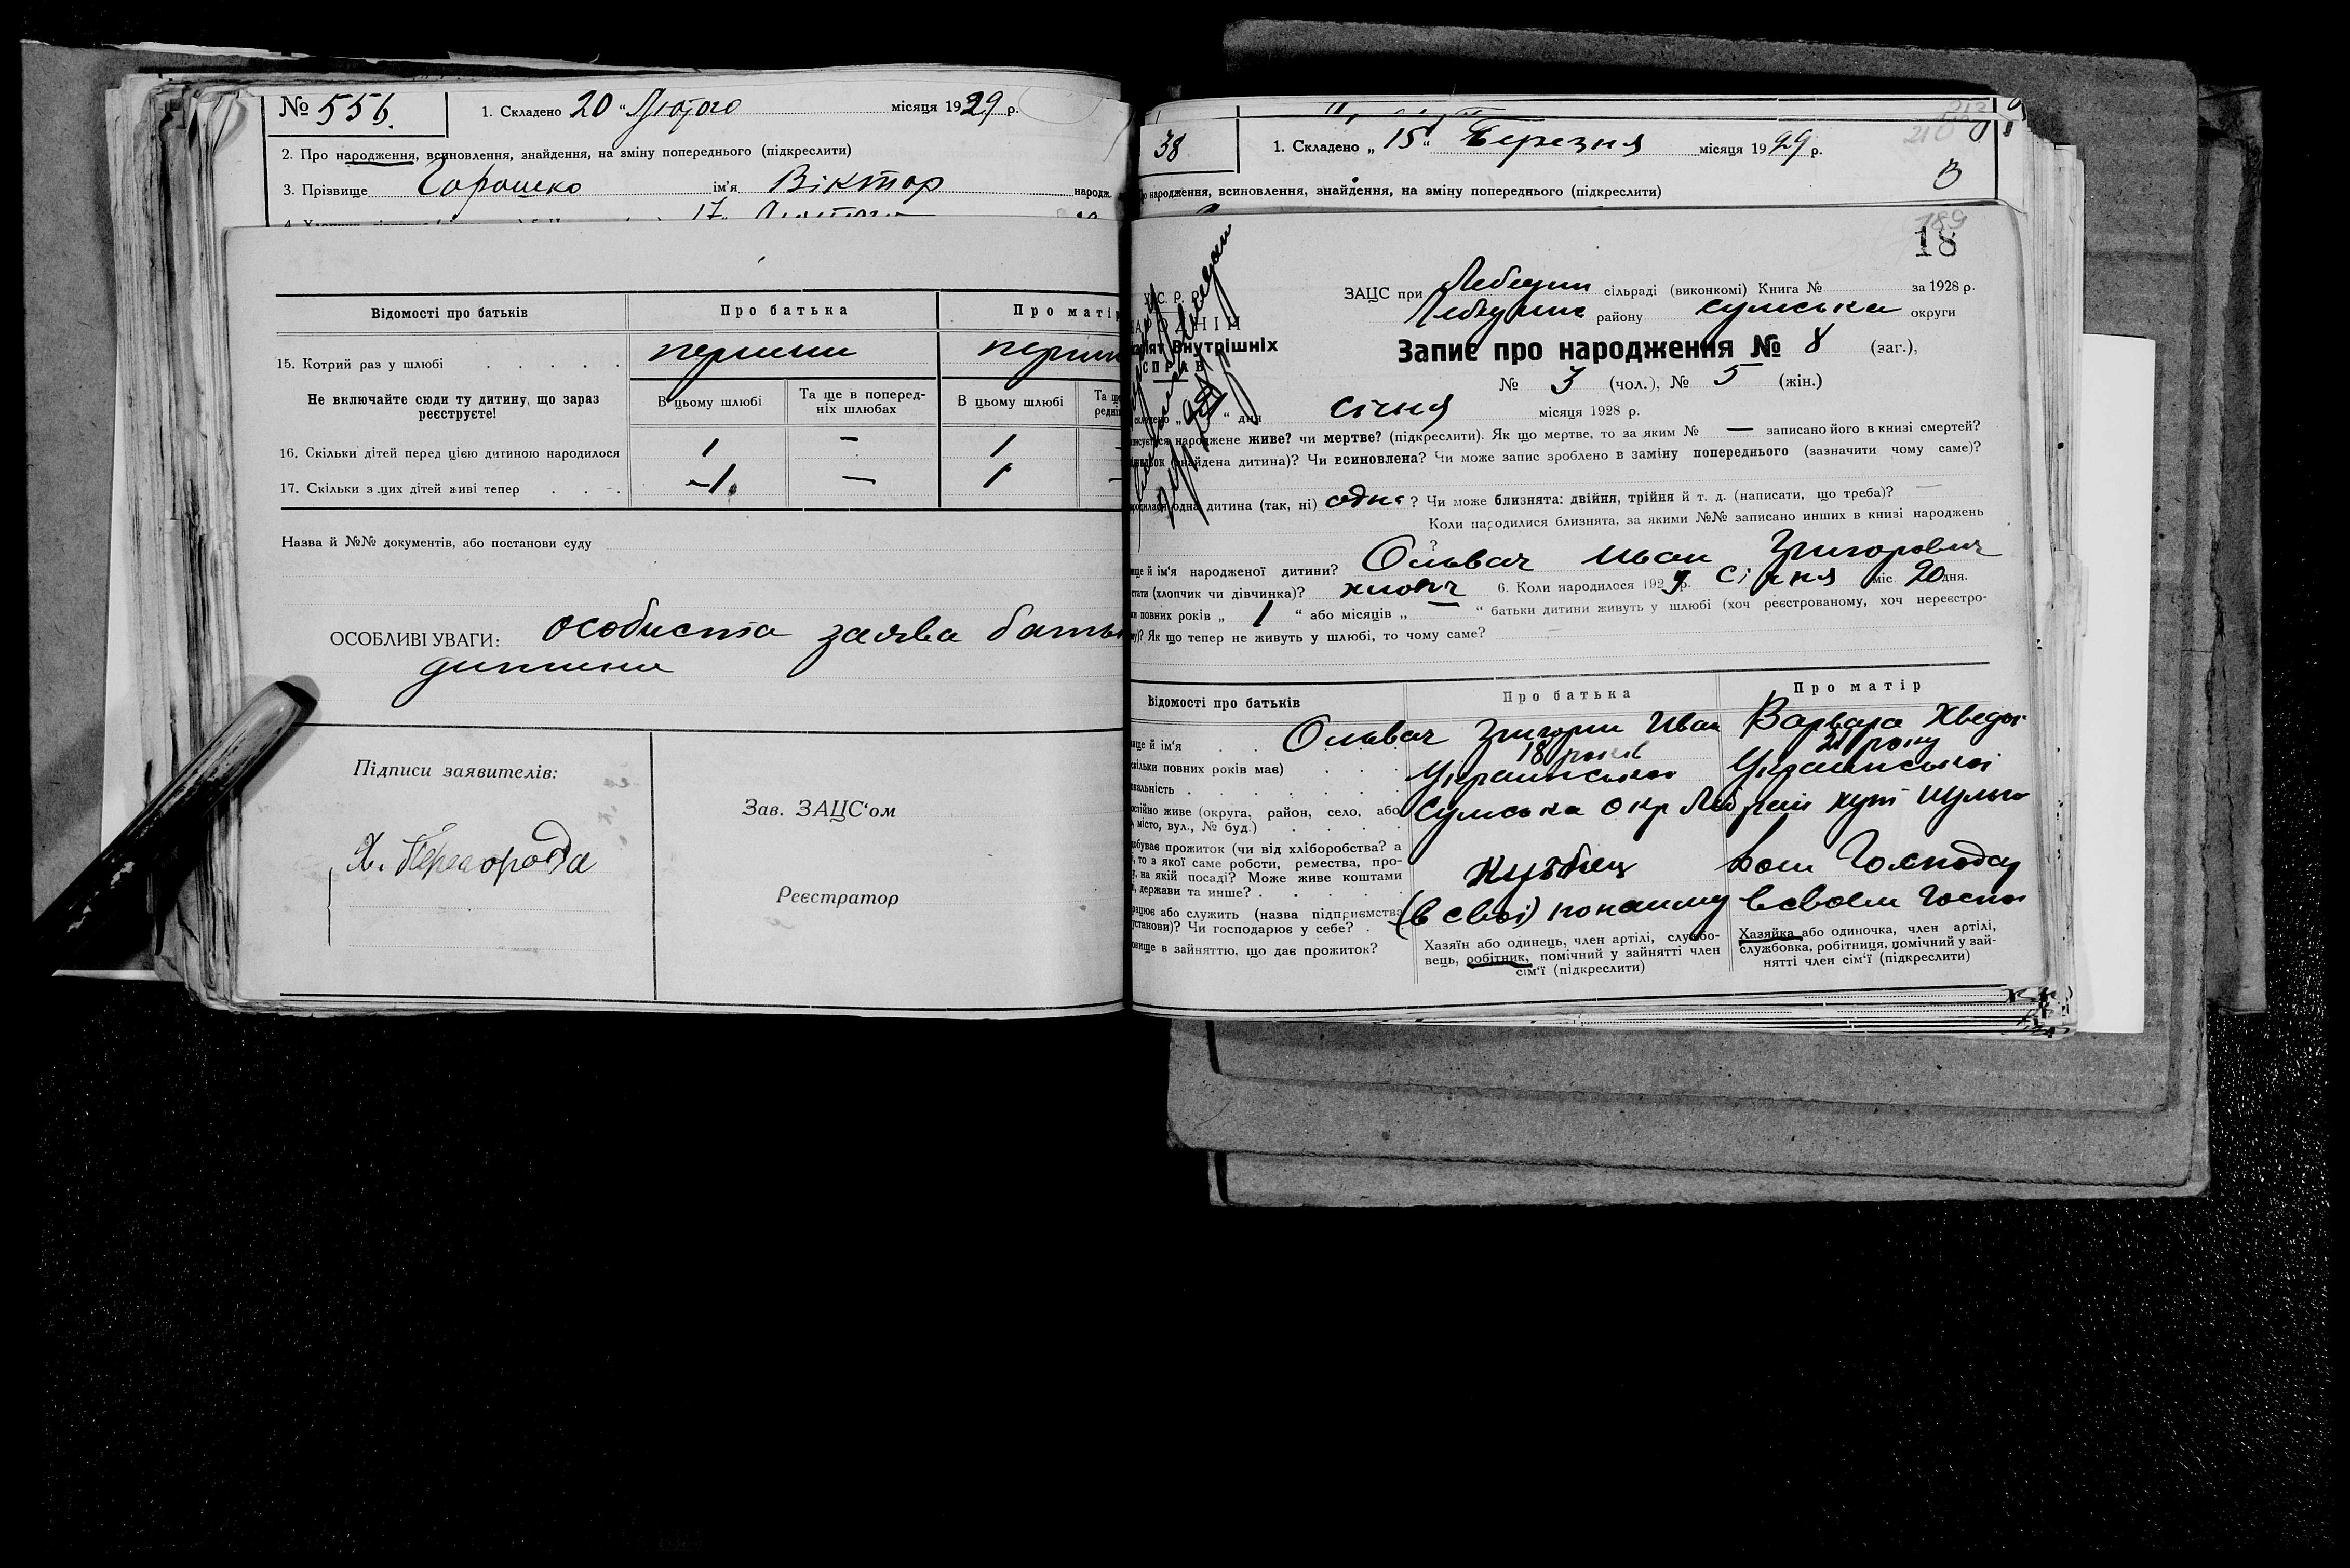 № 556. 1. Складено 20 „ Лютого місяця 1929 р.
2. Про народження, всиновлення, знайдення, на зміну попереднього (підкреслити)
3. Прізвище Горошко ім'я Віктор народж.
17 Лютого
Відомості про батьків Про батька Про матір
15. Котрий раз у шлюбі . . . . . перший
Не включайте сюди ту дитину, що зараз реєструєте!
В цьому шлюбі Та ще в поперед- В цьому шлюбі
ніх шлюбах
16. Скільки дітей перед цією дитиною народилося 1 – 1
17. Скільки з цих дітей живі тепер . . . 1 — 1
Назва й №№ документів, або постанови суду
ОСОБЛИВІ УВАГИ: особиста заява
дитини
Підписи заявителів:
Зав. ЗАЦС'ом
Реєстратор
38 1. Складено „ 15 “ Березня місяця 1929 р.
народження, всиновлення, знайдення, на зміну попереднього (підкреслити)
В
189
18
ЗАЦС при Лебедин сільраді (виконкомі) Книга № за 1928 р.
району сумська округи
Внутрішніх
СПРАВ
Запис про народження № 8 (заг.),
№ 3 (чол.), № 5 (жін.)
“ дня січня місяця 1928 р.
народжене живе? чи мертве? (підкреслити). Як що мертве, то за яким № — записано його в книзі смертей?
(знайдена дитина)? Чи всиновлена? Чи може запис зроблено в заміну попереднього (зазначити чому саме)?
одна дитина (так, ні) одна ? Чи може близнята: двійня, трійня й т. д. (написати, що треба)? —
Коли народилися близнята, за якими №№ записано инших в книзі народжень
?
й ім'я народженої дитини? Ольвач Иван Григорович
(хлопчик чи дівчинка)? хлопч 6. Коли народилося 1929 р. Січня міс. 20 дня.
повних років „ 1 “ або місяців „ — “ батьки дитини живуть у шлюбі (хоч реєстрованому, хоч нереєстро-
Як що тепер не живуть у шлюбі, то чому саме?
Відомості про батьків Про батька Про матір
й ім'я . . Ольвач Григорий Иван Варвара Хведор
повних років має) . . . 18 років 21 року
. . . . . . . Украинської Украинської
живе (округа, район, село, або Сумська окр Леб рай хут
місто, вул., № буд.) . . . .
прожиток (чи від хліборобства? а
то з якої саме роботи, ремества, про-
на якій посаді? Може живе коштами
держави та инше? . . . . .
дом Господар
або служить (назва підприємства, (в свої) по найму в своем госпо
установи)? Чи господарює у себе? .
в зайняттю, що дає прожиток?
Хазяїн або одинець, член артілі, службо-
вець, робітник, помічний у зайнятті член
сім'ї (підкреслити)
Хазяйка або одиночка, член артілі,
службовка, робітниця, помічний у зай-
нятті член сім'ї (підкреслити)